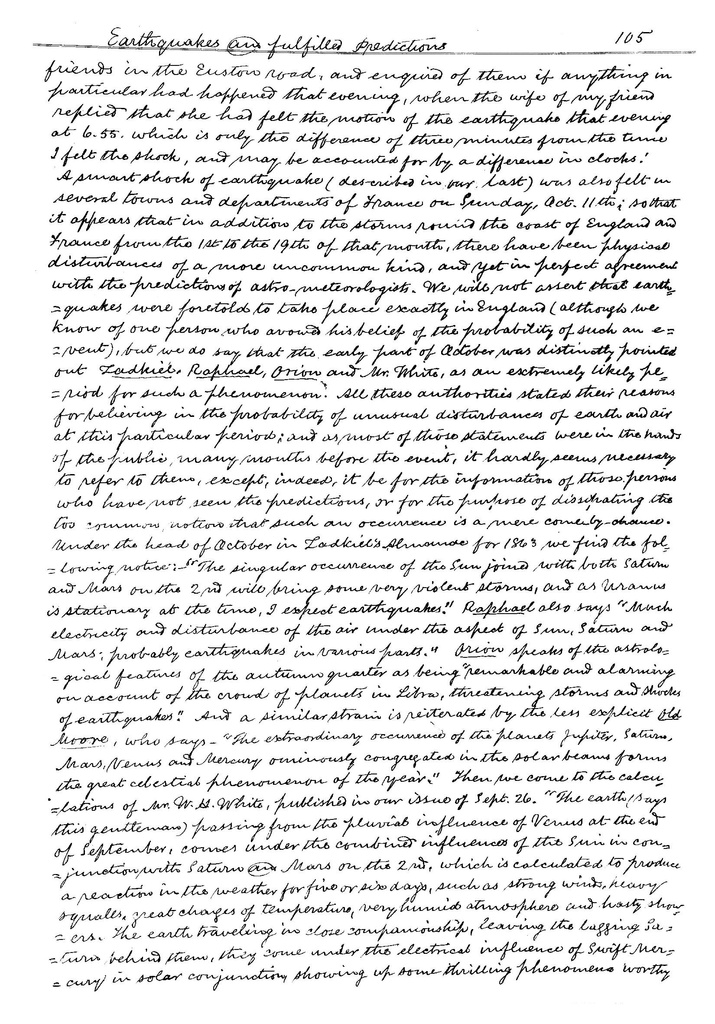 Earthquakes and fulfilled Predictions 105
friends in the Euston road, and enquired of them if anything in
particular had happened that evening, when the wife of my friend
replied that she had felt the motion of the earthquake that evening
at 6.55. which is only the difference of three minutes from the time
I felt the shock, and may be accounted for by a difference in clocks."
A smart shock of earthquake (described in our last) was also felt in
several towns and departments of France on Sunday, Oct. 11th; so that
it appears that in addition to the storms round the coast of England and
France from the 1st to the 19th of that month, there have been physical
disturbances of a more uncommon kind, and yet in perfect agreement
with the predictions of astro-meteorologists. We will not assert that earth=
=quakes were foretold to take place exactly in England (although we
know of one person who avowed his belief of the probability of such an e=
=vent), but we do say that the early part of October was distinctly pointed
out Zadkiel, Raphael, Orion and Mr. White, as an extremely likely pe=
=riod for such a phenomenon. All these authorities stated their reasons
for believing in the probability of unusual disturbances of earth and air
at this particular period; and as most of those statements were in the hands
of the public, many months before the event, it hardly seems necessary
to refer to them, except, indeed, it be for the information of those persons
who have not seen the predictions, or for the purpose of dissipating the
too common notion that such an occurrence is a mere come-by-chance.
Under the head of October in Zadkiel's Almanac for 1863 we find the fol=
=lowing notice:—"The singular occurrence of the Sun joined with both Saturn
and Mars on the 2nd will bring some very violent storms, and as Uranus
is stationary at the time, I expect earthquakes." Raphael also says "Much
electricity and disturbance of the air under the aspect of Sun, Saturn and
Mars; probably earthquakes in various parts." Orion speaks of the astrolo=
=gical features of the autumn quarter as being "remarkable and alarming
on account of the crowd of planets in Libra, threatening storms and shocks
of earthquakes." And a similar strain is reiterated by the less explicit Old
Moore, who says— "The extraordinary occurrence of the planets Jupiter, Saturn,
Mars, Venus and Mercury ominously congregated in the solar beams forms
the great celestial phenomenon of the year." Then we come to the calcu
=lations of Mr. W. H. White, published in our issue of Sept. 26. "The earth (says
this gentleman) passing from the pluvial influence of Venus at the end
of September, comes under the combined influences of the Sun in con=
=junction with Saturn and Mars on the 2nd, which is calculated to produce
a reaction in the weather for five or six days, such as strong winds, heavy
squalls, great changes of temperature, very humid atmosphere and hasty show=
=ers. The earth traveling in close companionship, leaving the lagging Sa=
=turn behind them, they come under the electrical influence of Swift Mer=
=cury in solar conjunction, showing up some thrilling phenomena worthy